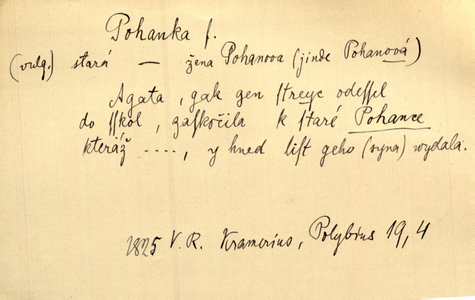 Pohanka f.
(vulg.) stará — žena Pohanova (jinde Pohanová)
Agata, gak gen streyc odessel
do sskol, zasskočila k staré Pohance
kteráž ...., y hned list geho (syna) wydala.
1825 V. R. Kramerius, Polybius 19, 4